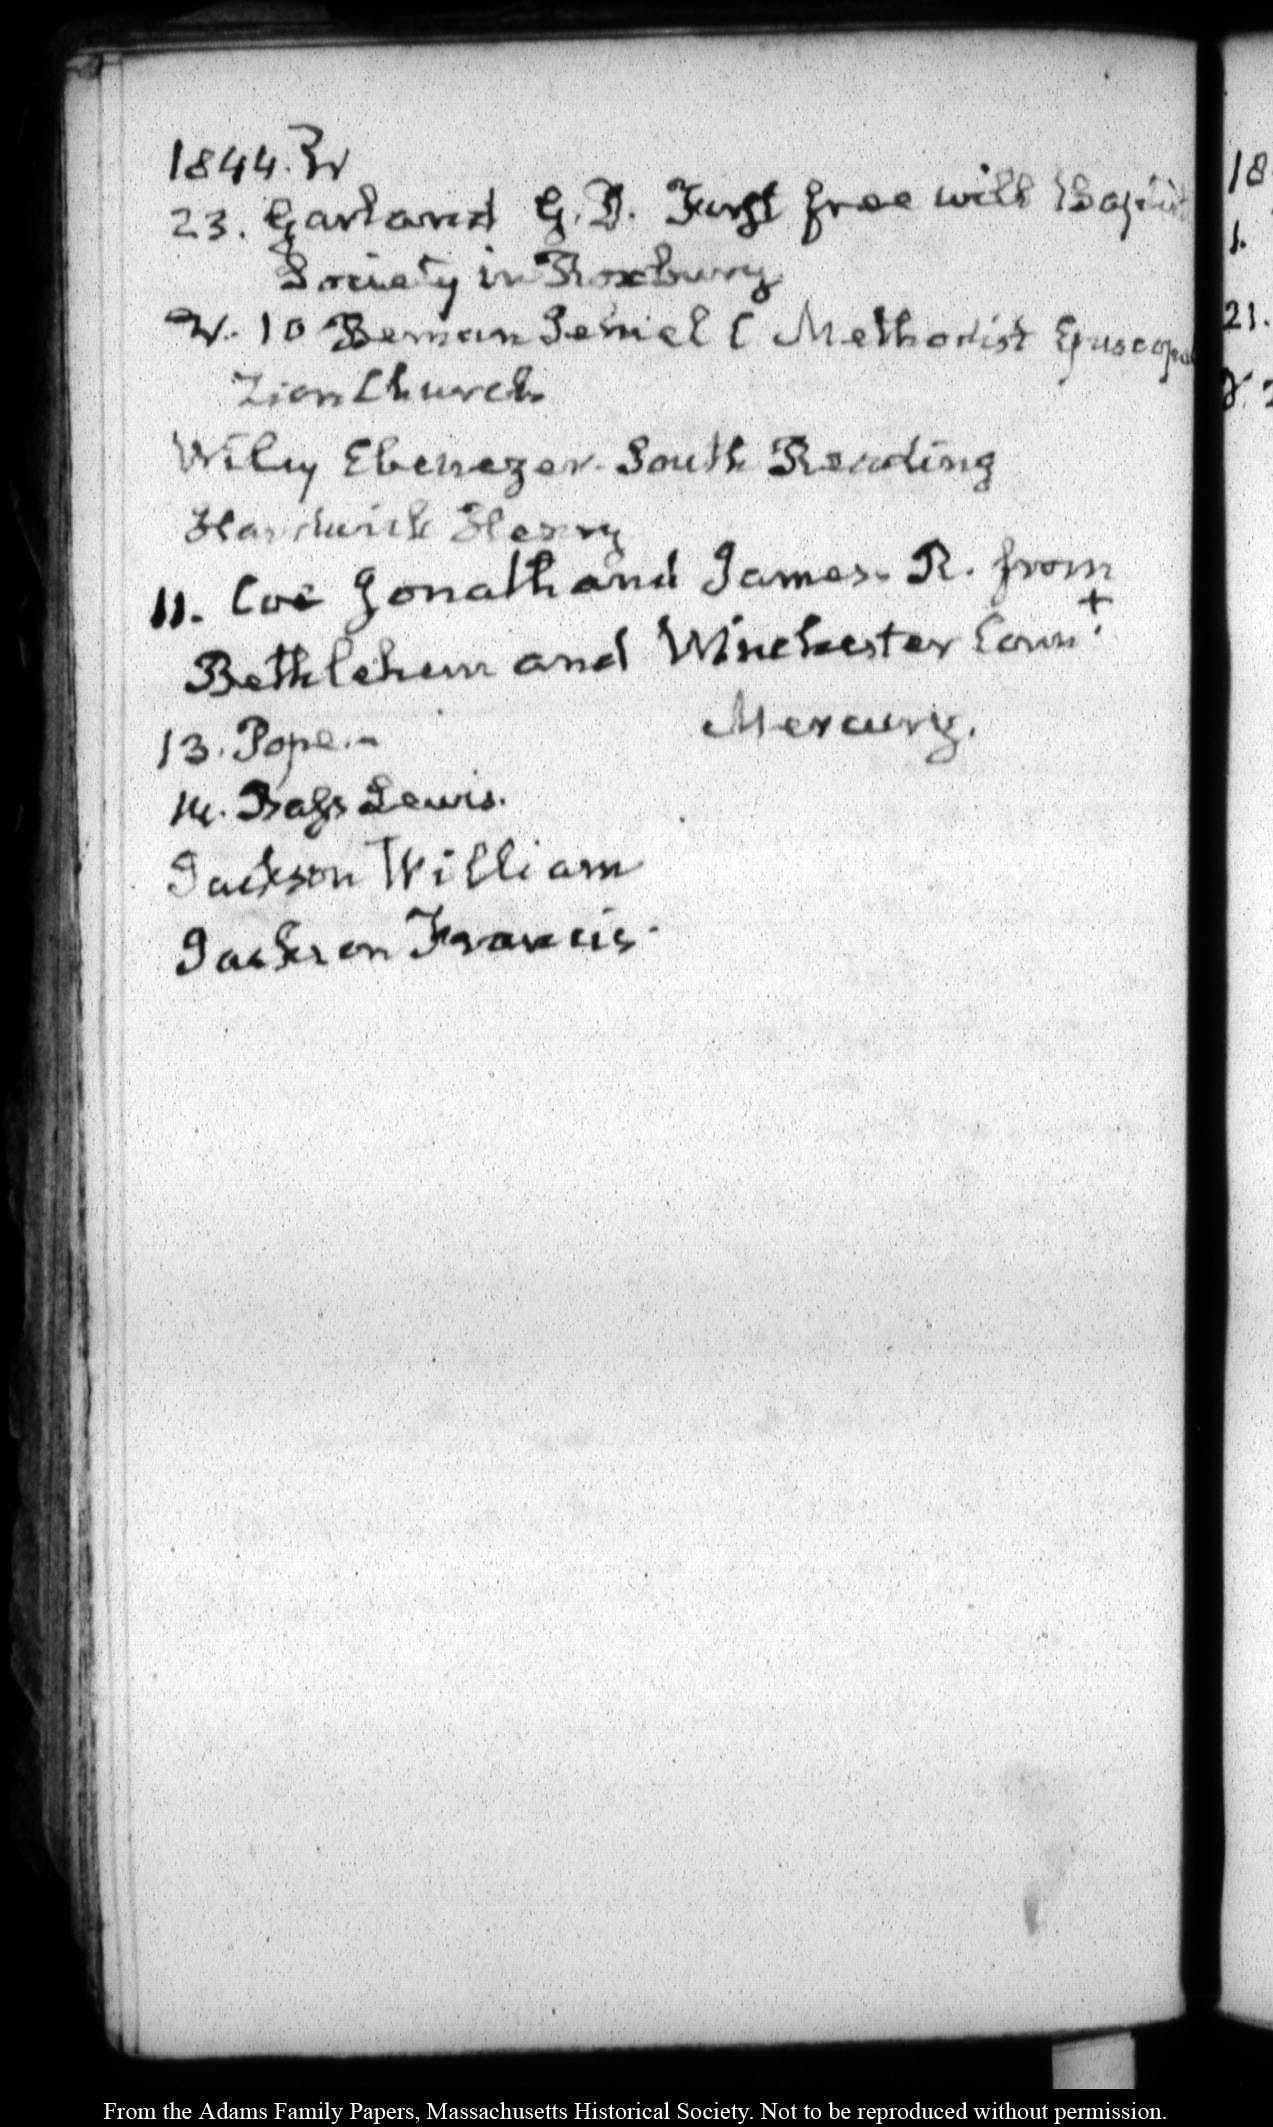 1844. IV
23. Garland G. D. First free will Baptist
Society in Roxbury
V. 10 Beman Jehiel C Methodist Episcopal
Zion Church
Wiley Ebenezer. South Reading
Hardwick Henry
11. Coe Jonath and James. R. from
Bethlehem and Winchester Conn.t
13. Pope.- Mercury.
14. Bass Lewis.
Jackson William
Jackson Francis.
18
1.
21.
From the Adams Family Papers, Massachusetts Historical Society. Not to be reproduced without permission.